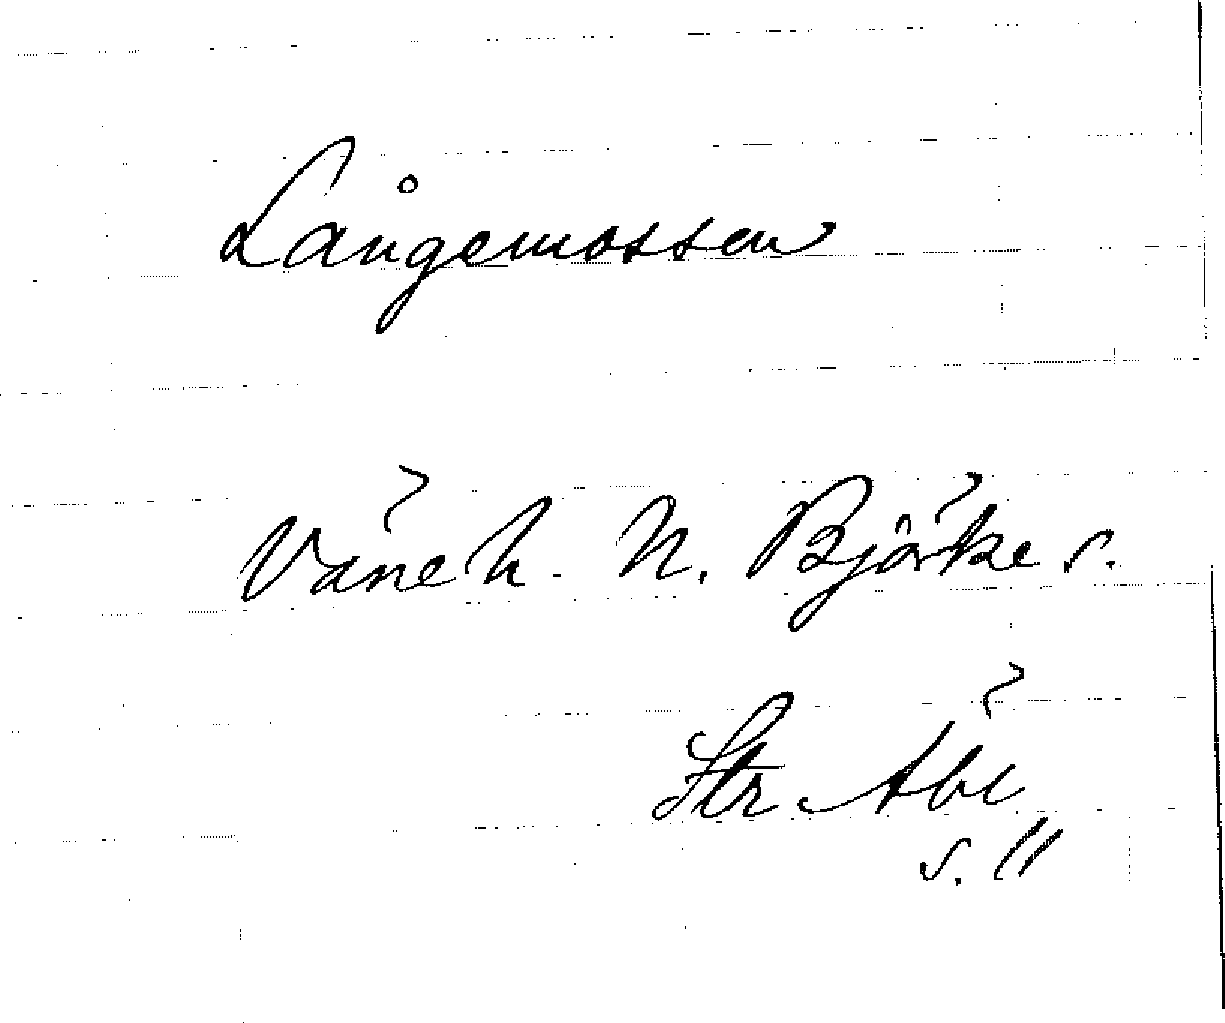 Långemossen
Väne h. N. Björke s.
Str. Åbé
s. 11